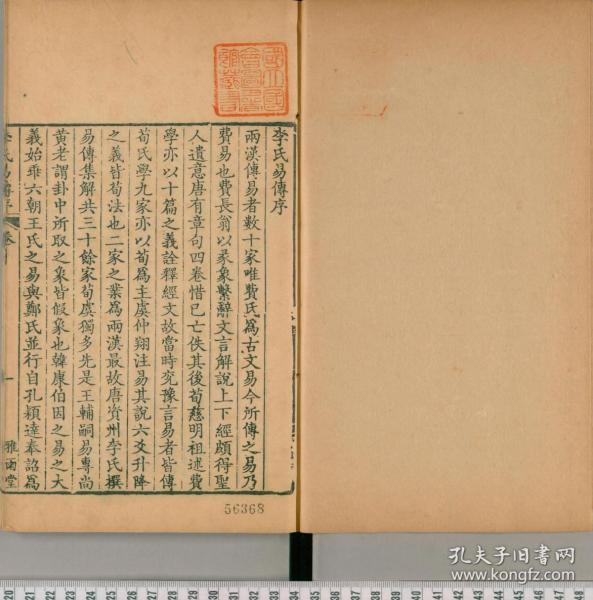 李氏易傳序
兩漢傳易者數十家唯費氏爲古文易今所傳之易乃
費易也費長翁以彖象繫辭文言解說上下經頗得聖
人遺意唐有章句四卷惜已亡佚其後荀慈明祖述費
學亦以十篇之義詮釋經文故當時兖豫言易者皆傳
荀氏學九家亦以荀爲主虞仲翔注易其說六爻升降
之義皆荀法也二家之業爲兩漢最故唐資州李氏撰
易傳集解共三十餘家荀虞獨多先是王輔嗣易專尚
黃老謂卦中所取之象皆假象也韓康伯因之易之大
義始乖六朝王氏之易與鄭氏並行自孔穎達奉詔爲
李氏易傳序
一
雅雨堂
56368
孔夫子旧书网
www.kongfz.com
20 21 22 23 24 25 26 27 28 29 30 31 32 33 34 35 36 37 38 39 40 41 42 43 44 45 46 47 48